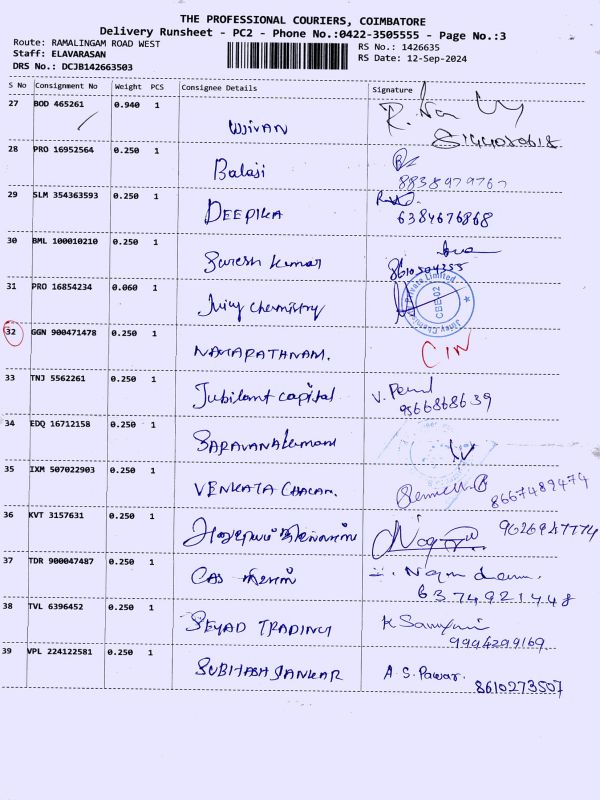 THE PROFESSIONAL COURIERS, COIMBATORE
Delivery Runsheet - PC2 - Phone No.:0422-3505555 - Page No.:3
Route: RAMALINGAM ROAD WEST
Staff: ELAVARASAN
DRS No.: DCJB142663503
RS No.: 1426635
RS Date: 12-Sep-2024
S No Consignment No Weight PCS Consignee Details Signature
27 BOD 465261 0.940 1
28 PRO 16952564 0.250 1 Balaji
8838979767
29 SLM 354363593 0.250 1 DEEPIKA
6384676868
30 BML 100010210 0.250 1 Suresh kumar
8610504355
31 PRO 16854234 0.060 1 Juicy chemistry
Private Limited
CBE-02
32 GGN 900471478 0.250 1 NAVARATHNAM. CIN
33 TNJ 5562261 0.250 1 Jubilant capital
9566868639
34 EDQ 16712158 0.250 1 SARAVANAkumar
35 IXM 507022903 0.250 1 VENKATA CHALAM.
8667489474
36 KVT 3157631 0.250 1
37 TDR 900047487 0.250 1 CAS
6374921448
38 TVL 6396452 0.250 1 SEYAD TRADING
9994299169
39 VPL 224122581 0.250 1 SUBHASH SANKAR A.S.Pawar.
8610273507